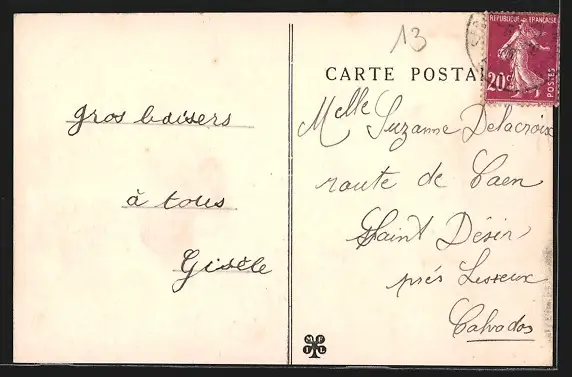 13
CARTE POSTALE
REPUBLIQUE FRANÇAISE
20c
POSTES
gros baisers
à tous
Gisèle
Melle Suzanne Delacroix
route de Caen
Saint Désir
près Lisieux
Calvados